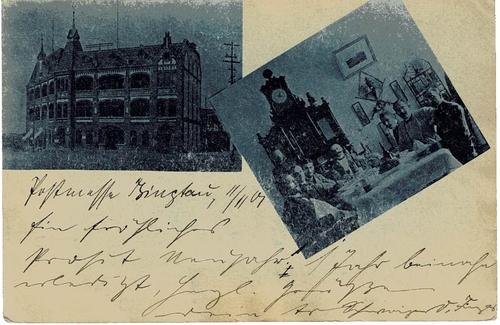 Postmesse Tsingtau, 11/11 01
Ein fröhliches
Prosit Neujahr! 1 Jahr beinahe
erledigt, Herzl. Grüße
dein tr.